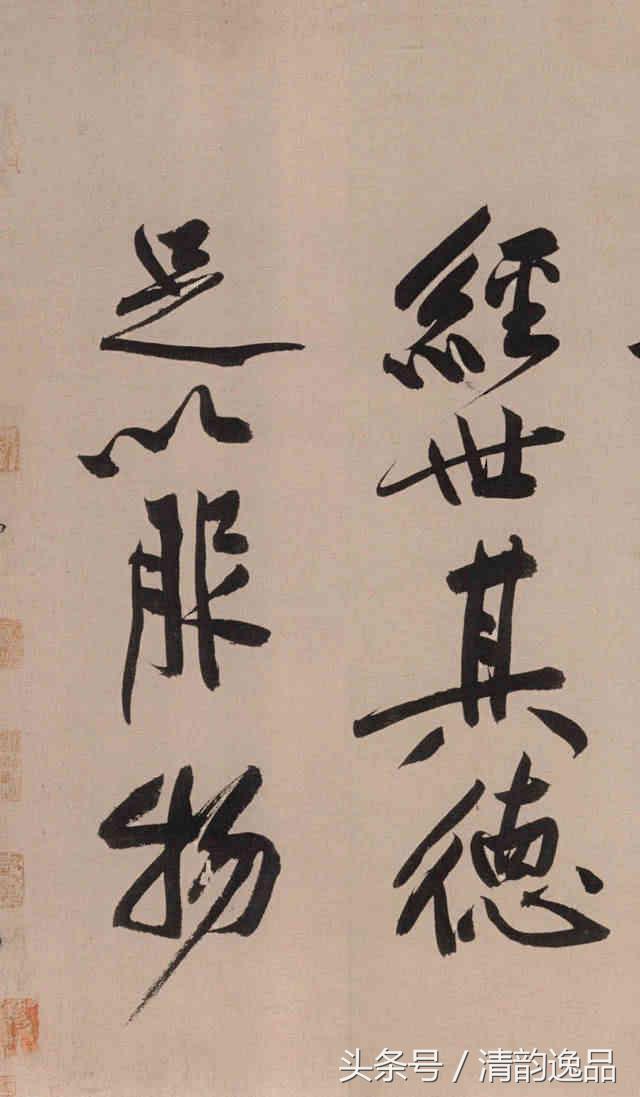 經世其德
足以服物
头条号 / 清韵逸品